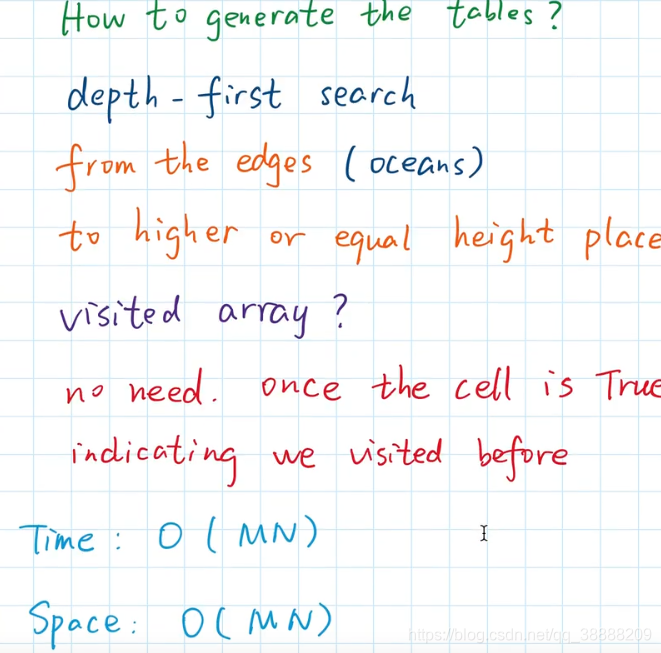 How to generate the tables?
depth-first search
from the edges (oceans)
to higher or equal height place
visited array?
no need. once the cell is True
indicating we visited before
Time: O(MN)
Space: O(MN)
https://blog.csdn.net/qq_38888209